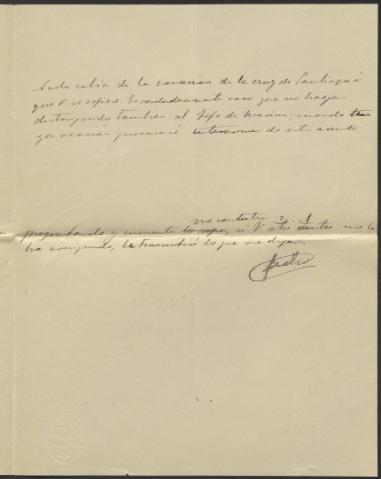 Nada sabía de la concesion de la cruz de Santiago á
que V. se refiere. Es verdaderamente raro que no hayan
distinguido tambien al Jefe de Marina; cuando
ga ocasión procuraré enterarme de este asunto.
me contesten 2 1
preguntando y en cuanto lo sepa, si V. no lo
ha averiguado, le transmitiré lo que me digan.
Pedro